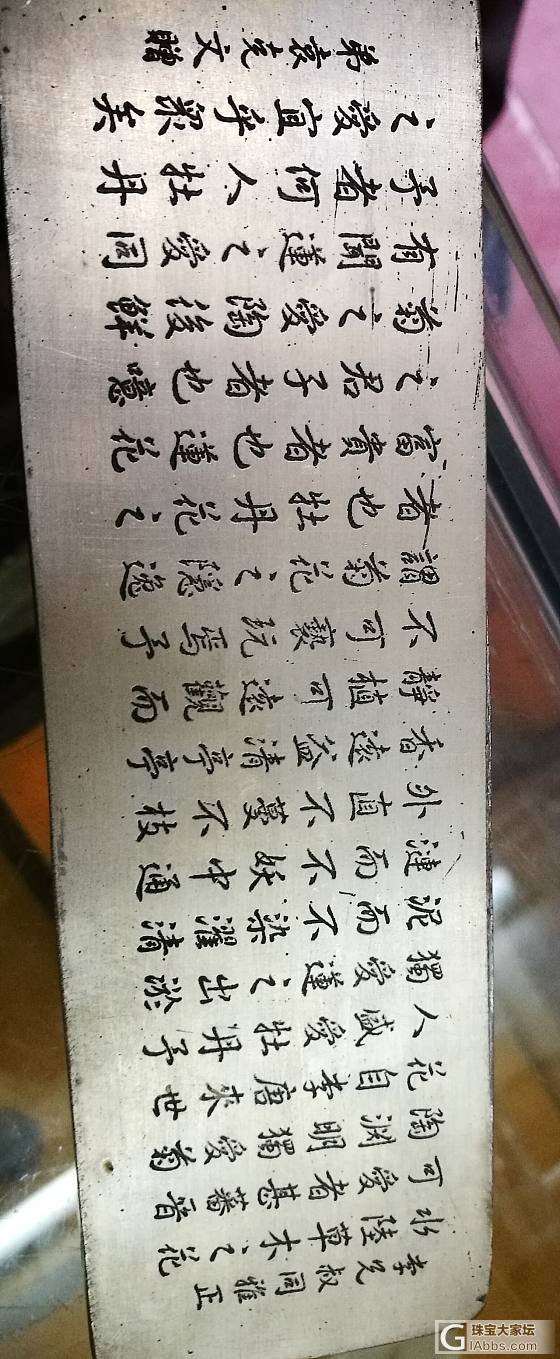 李兄叔同雅正
水陸草木之花
可愛者甚蕃晉
陶渊明獨愛菊
花自李唐來世
人盛愛牡丹予
獨愛蓮之出淤
泥而不染濯清
漣而不妖中通
外直不蔓不枝
香遠益清亭亭
靜植可遠觀而
不可褻玩焉予
謂菊花之隱逸
者也牡丹花之
富貴者也蓮花
之君子者也噫
菊之愛陶後鮮
有聞蓮之愛同
予者何人牡丹
之愛宜乎衆矣
弟袁克文贈
珠宝大家坛
GIAbbs.com